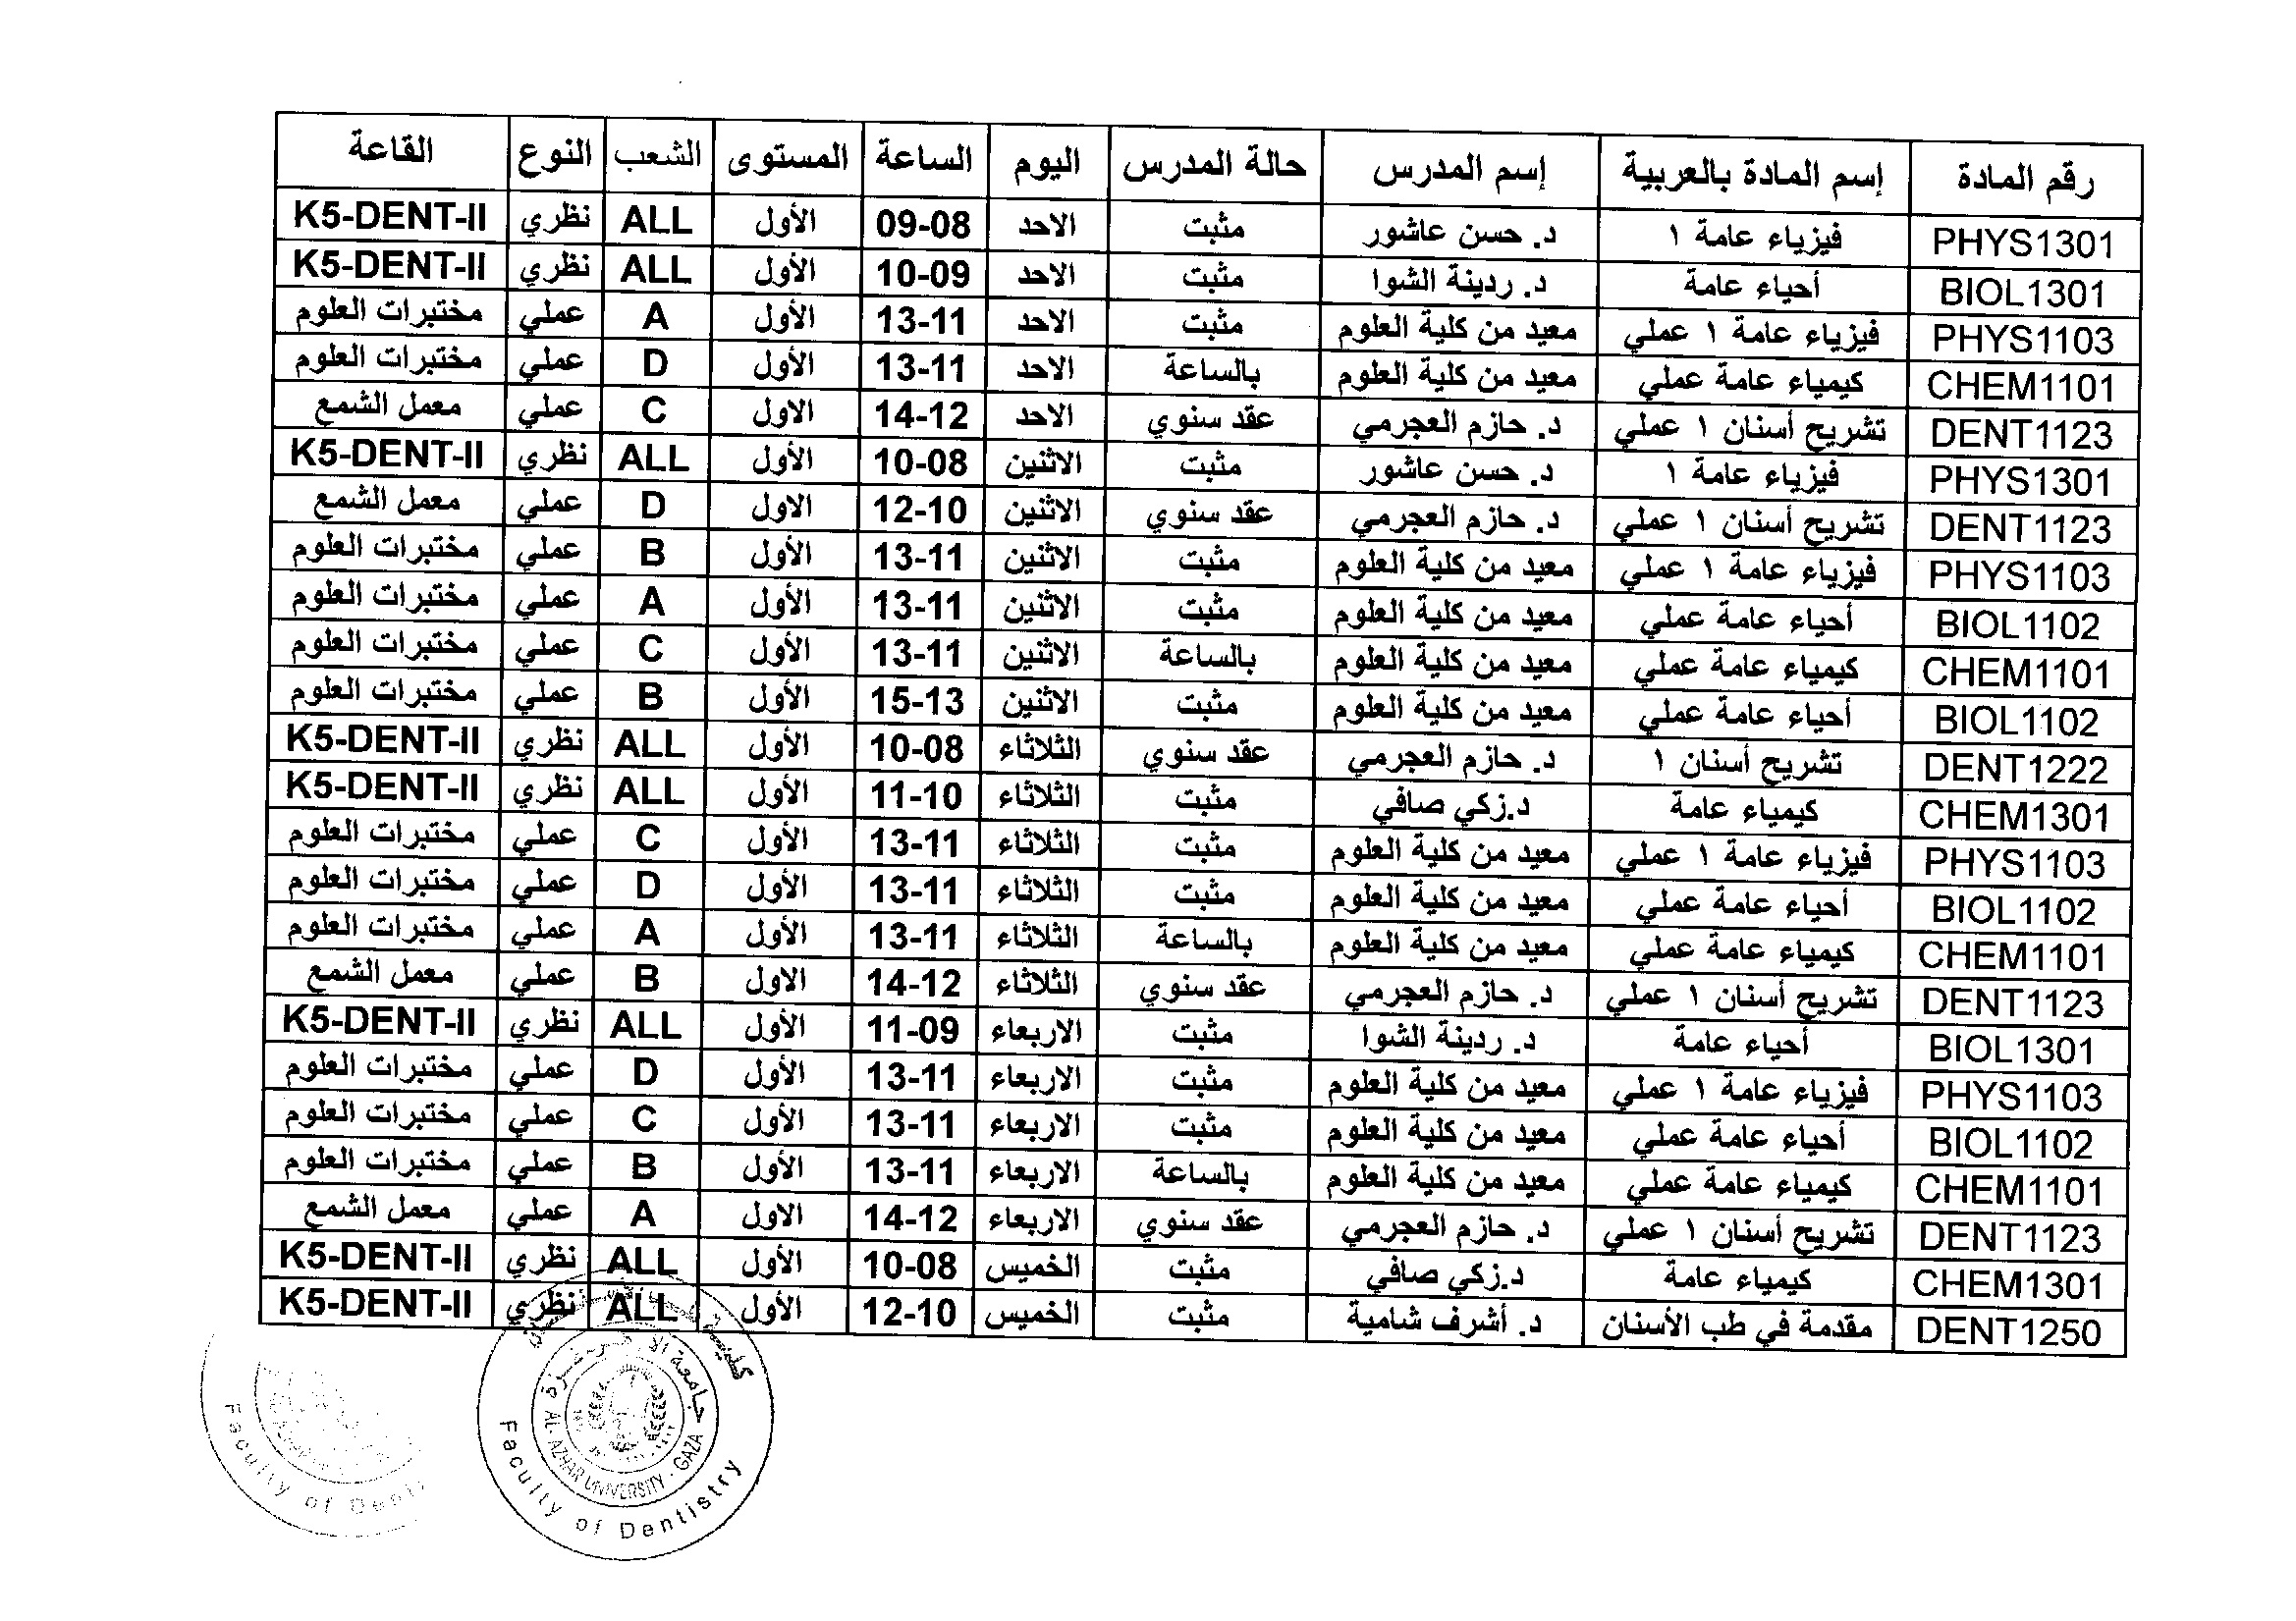 رقم المادة إسم المادة بالعربية إسم المدرس حالة المدرس اليوم الساعة المستوى الشعب النوع القاعة
PHYS1301 فيزياء عامة ١ د. حسن عاشور مثبت الاحد 09-08 الأول ALL نظري K5-DENT-II
BIOL1301 أحياء عامة د. ردينة الشوا مثبت الاحد 10-09 الأول ALL نظري K5-DENT-II
PHYS1103 فيزياء عامة ١ عملي معيد من كلية العلوم مثبت الاحد 13-11 الأول A عملي مختبرات العلوم
CHEM1101 كيمياء عامة عملي معيد من كلية العلوم بالساعة الاحد 13-11 الأول D عملي مختبرات العلوم
DENT1123 تشريح أسنان ١ عملي د. حازم العجرمي عقد سنوي الاحد 14-12 الاول C عملي معمل الشمع
PHYS1301 فيزياء عامة ١ د. حسن عاشور مثبت الاثنين 10-08 الأول ALL نظري K5-DENT-II
DENT1123 تشريح أسنان ١ عملي د. حازم العجرمي عقد سنوي الاثنين 12-10 الاول D عملي معمل الشمع
PHYS1103 فيزياء عامة ١ عملي معيد من كلية العلوم مثبت الاثنين 13-11 الأول B عملي مختبرات العلوم
BIOL1102 أحياء عامة عملي معيد من كلية العلوم مثبت الاثنين 13-11 الأول A عملي مختبرات العلوم
CHEM1101 كيمياء عامة عملي معيد من كلية العلوم بالساعة الاثنين 13-11 الأول C عملي مختبرات العلوم
BIOL1102 أحياء عامة عملي معيد من كلية العلوم مثبت الاثنين 15-13 الأول B عملي مختبرات العلوم
DENT1222 تشريح أسنان ١ د. حازم العجرمي عقد سنوي الثلاثاء 10-08 الأول ALL نظري K5-DENT-II
CHEM1301 كيمياء عامة د.زكي صافي مثبت الثلاثاء 11-10 الأول ALL نظري K5-DENT-II
PHYS1103 فيزياء عامة ١ عملي معيد من كلية العلوم مثبت الثلاثاء 13-11 الأول C عملي مختبرات العلوم
BIOL1102 أحياء عامة عملي معيد من كلية العلوم مثبت الثلاثاء 13-11 الأول D عملي مختبرات العلوم
CHEM1101 كيمياء عامة عملي معيد من كلية العلوم بالساعة الثلاثاء 13-11 الأول A عملي مختبرات العلوم
DENT1123 تشريح أسنان ١ عملي د. حازم العجرمي عقد سنوي الثلاثاء 14-12 الاول B عملي معمل الشمع
BIOL1301 أحياء عامة د. ردينة الشوا مثبت الاربعاء 11-09 الأول ALL نظري K5-DENT-II
PHYS1103 فيزياء عامة ١ عملي معيد من كلية العلوم مثبت الاربعاء 13-11 الأول D عملي مختبرات العلوم
BIOL1102 أحياء عامة عملي معيد من كلية العلوم مثبت الاربعاء 13-11 الأول C عملي مختبرات العلوم
CHEM1101 كيمياء عامة عملي معيد من كلية العلوم بالساعة الاربعاء 13-11 الأول B عملي مختبرات العلوم
DENT1123 تشريح أسنان ١ عملي د. حازم العجرمي عقد سنوي الاربعاء 14-12 الاول A عملي معمل الشمع
CHEM1301 كيمياء عامة د.زكي صافي مثبت الخميس 10-08 الأول ALL نظري K5-DENT-II
DENT1250 مقدمة في طب الأسنان د. أشرف شامية مثبت الخميس 12-10 الأول ALL نظري K5-DENT-II
جامعة الأزهر - غزة
AL-AZHAR UNIVERSITY - GAZA
Faculty of Dentistry
Faculty of